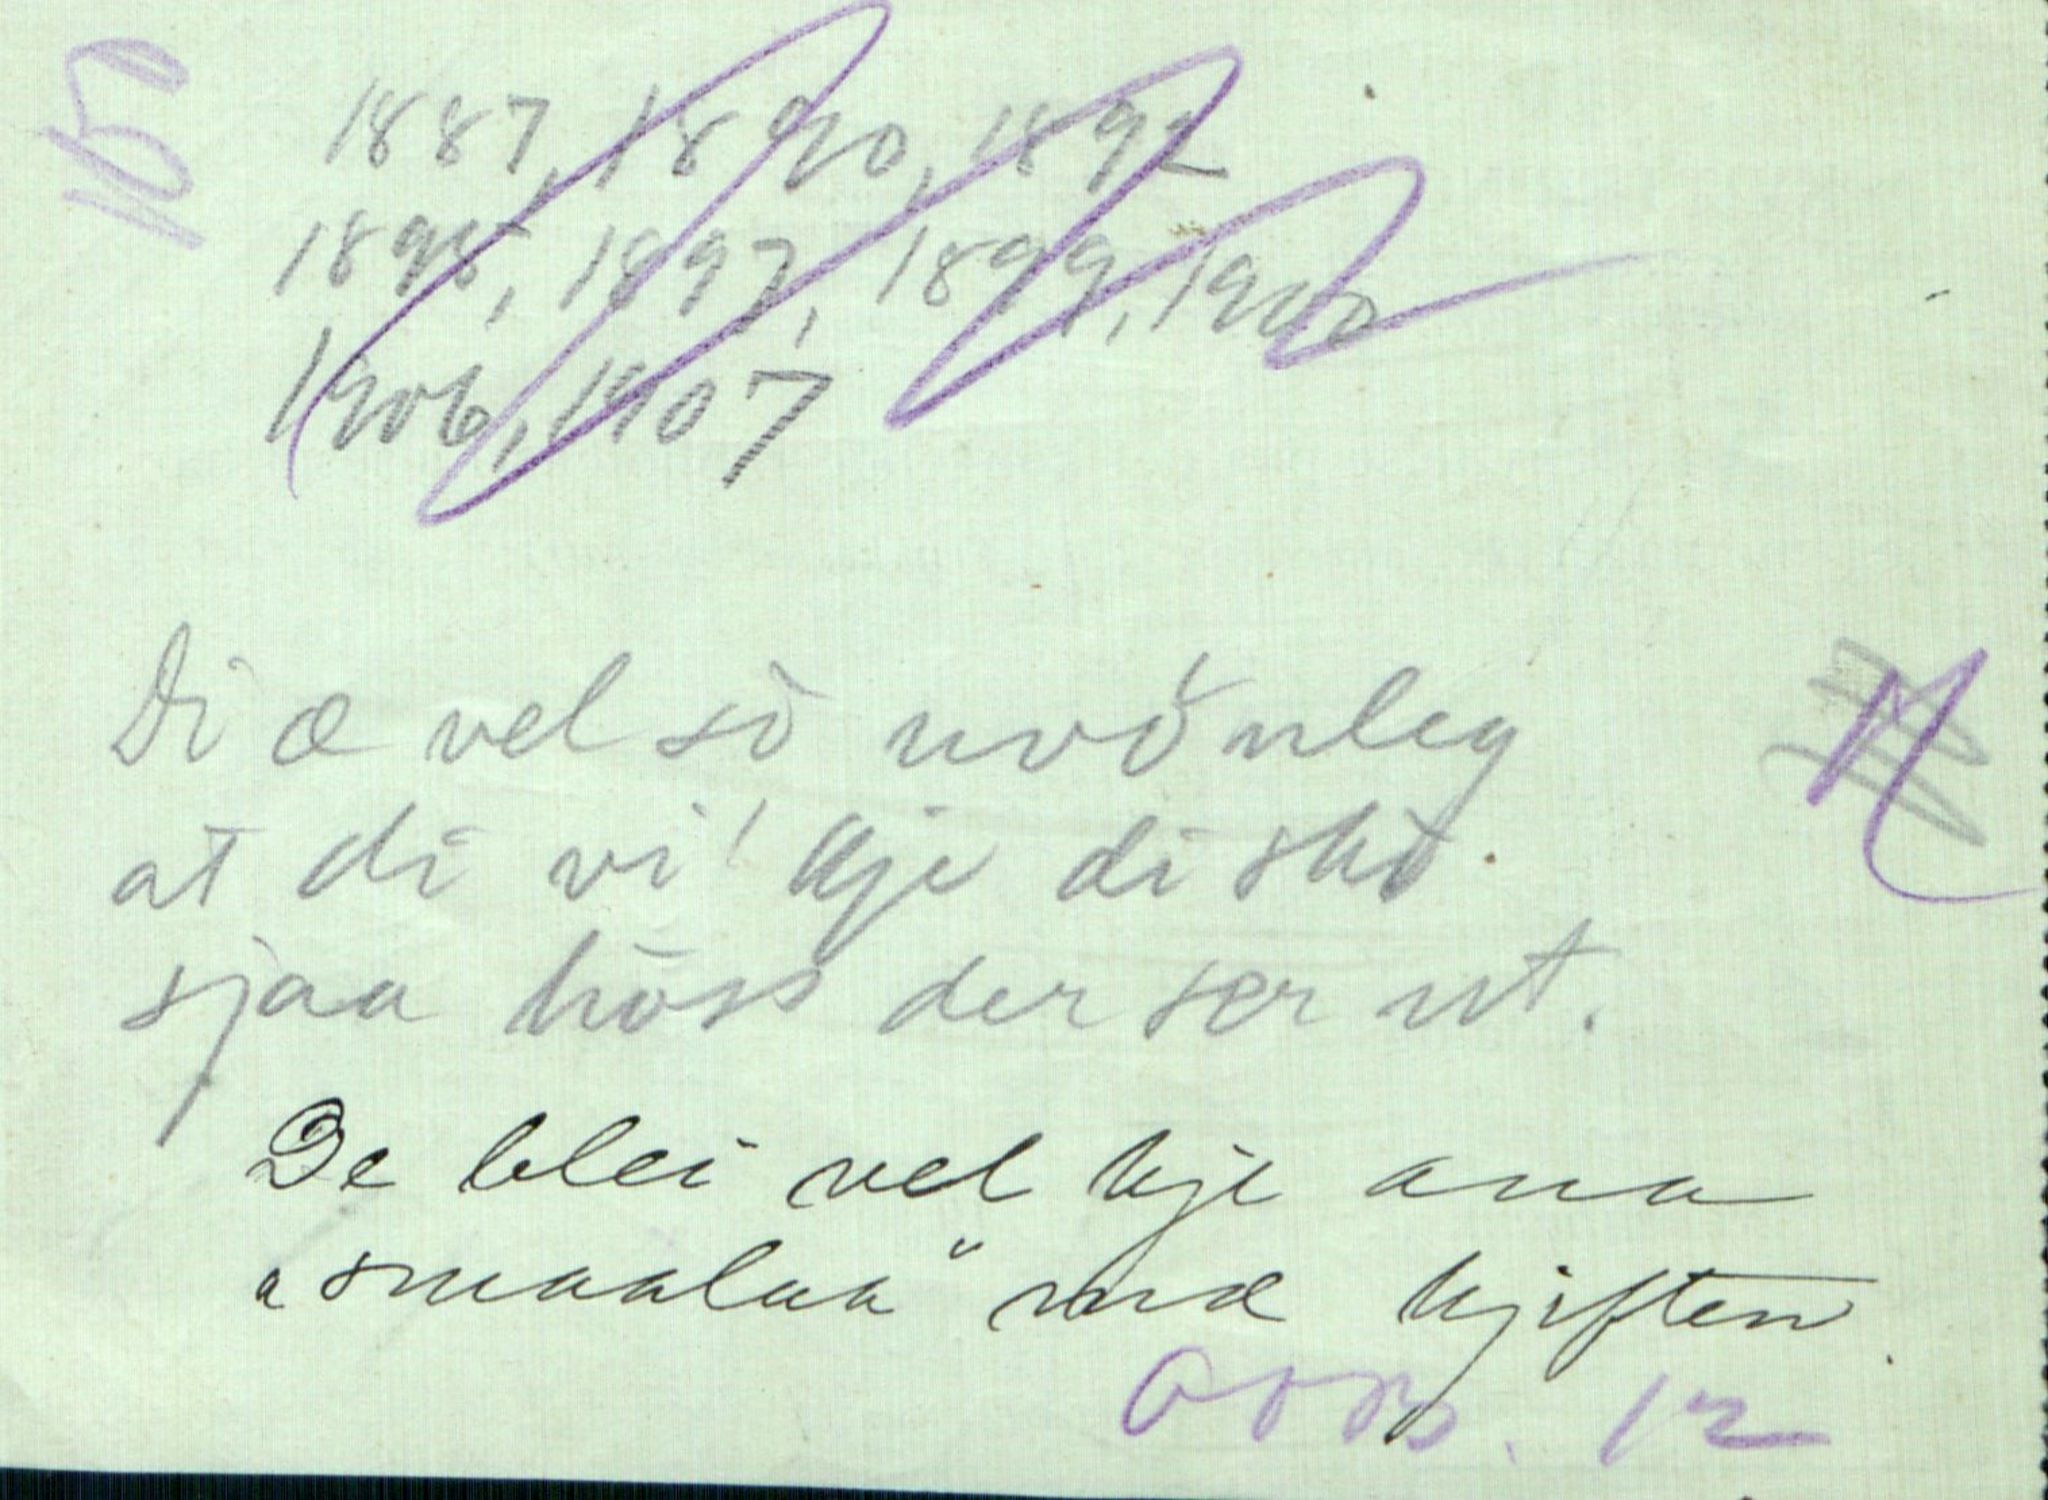 1887, 1890, 1892
1895, 1897, 1899, 1900
1906, 1907
Di æ vel sò uvŏnleg
at di vi' kje di skò
sjaa hòss der ser ut.
De blei vel kje ana
"smaalaa" mæ kjiften.
12